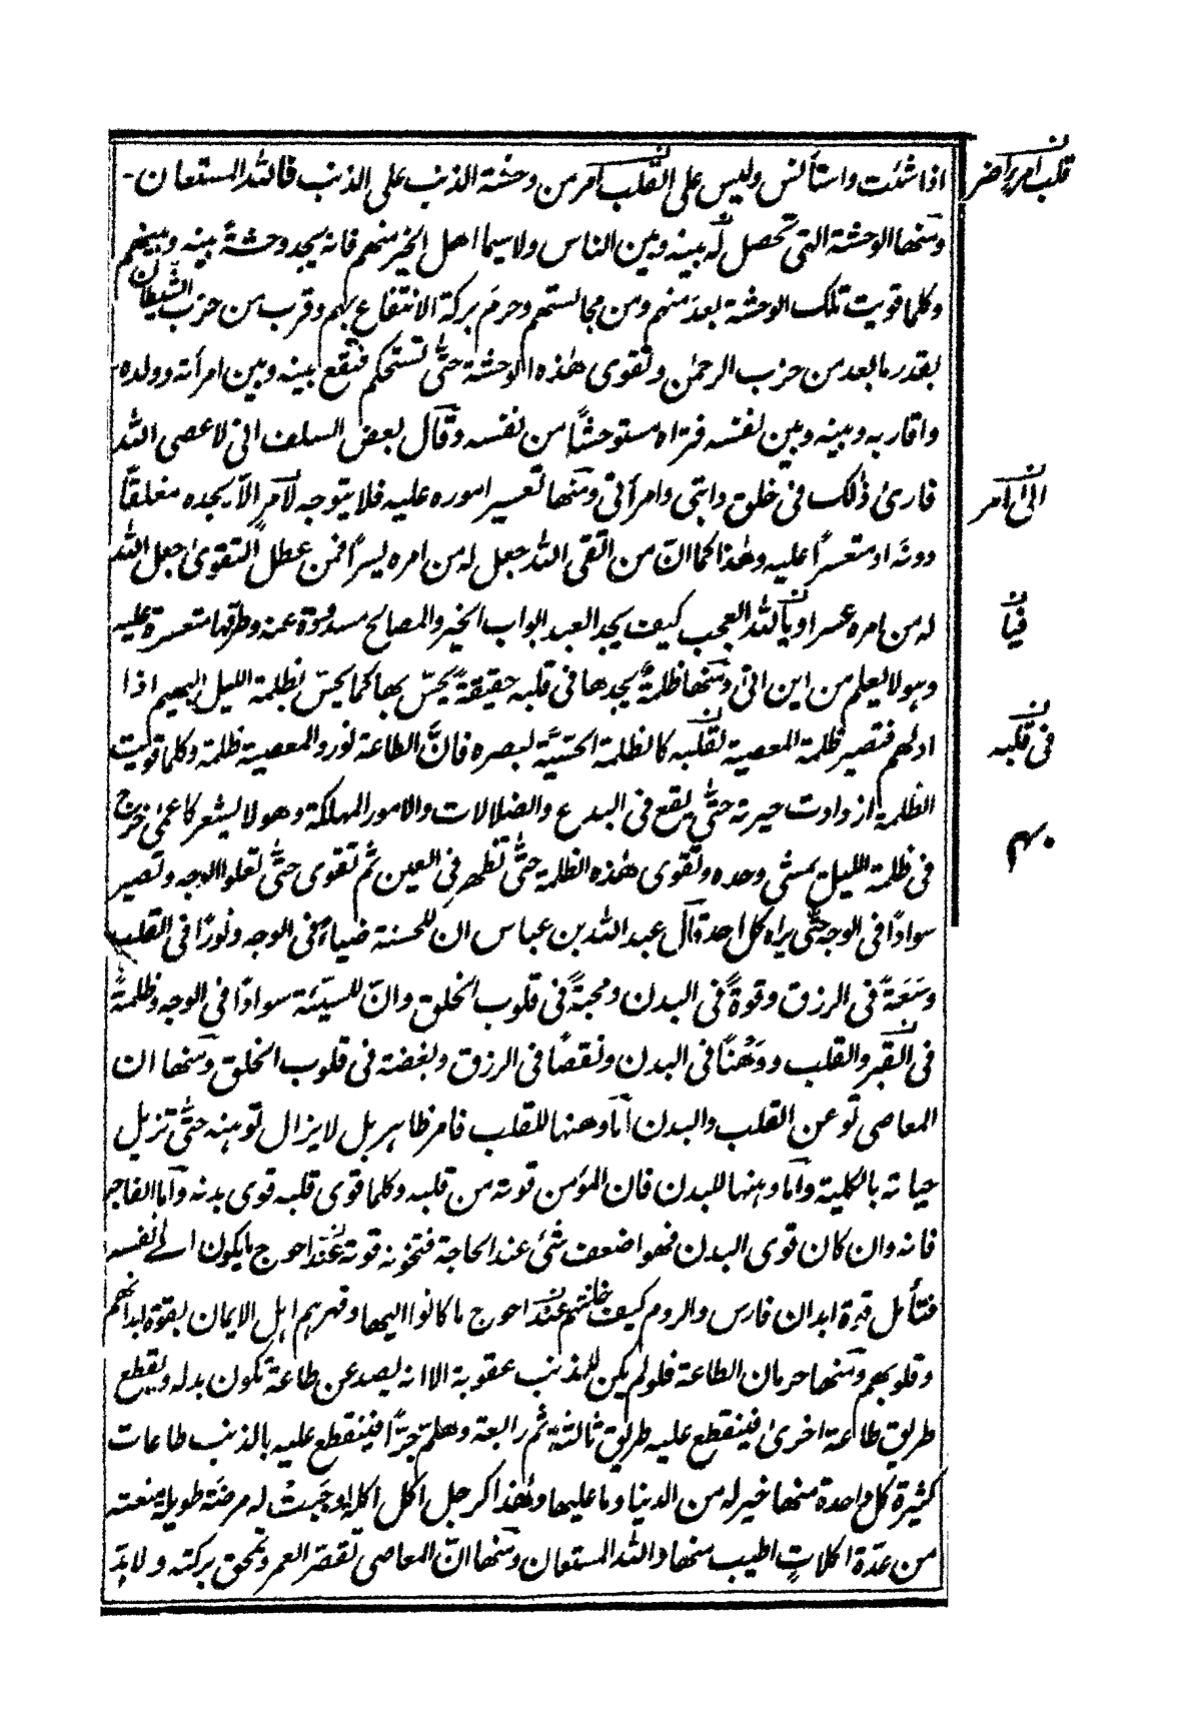 اذا شئت واستأنس وليس على القلب امر من وحشة الذنب على الذنب فالله المستعان -
ومنها الوحشة التى تحصل له بينه وبين الناس ولا سيما اهل الخير منهم فانه يجد وحشةً بينه وبينهم
وكلما قويت تلك الوحشة بعد منهم ومن مجالستهم وحرمَ بركة الانتفاع بهم وقرب من حزب الشيطان
بقدر ما بعد من حزب الرحمٰن وتقوى هٰذه الوحشة حتّٰى تستحكم فتقع بينه وبين امرأته وولده
واقاربه وبينه وبين نفسه فتراه مستوحشاً من نفسه وقال بعض السلف انى لاعصى الله
فارىٰ ذٰلك فى خلق دابتى وامرأتى ومنها تعسير اموره عليه فلا يتوجه لامرٍ الّا يجده مغلقاً
دونَه او متعسراً عليه وهٰذا كما انّ من اتقى الله جعل له من امره يسرًا فمن عطل التقوىٰ جعل الله
له من امره عسرا ويا لله العجب كيف يجد العبد ابواب الخير والمصالح مسدودة عنه وطرقها متعسرة عليه
وهو لا يعلم من اين اتى ومنها ظلمةٌ يجدها فى قلبه حقيقةً يحسّ بها كما يحسّ بظلمة الليل البهيم اذا
ادلهم فتصير ظلمة المعصية لقلبه كالظلمة الحسّيّة لبصره فانَّ الطاعة نور والمعصية ظلمة وكلما قويت
الظلمة ازدادت حيرته حتّٰى يقع فى البدع والضلالات والامور المهلكة وهو لا يشعر كاعمىٰ خرج
فى ظلمة الليل يمشى وحده وتقوى هٰذه الظلمة حتّٰى تظهر فى العين ثم تقوى حتّٰى تعلو الوجه وتصير
سوادًا فى الوجه حتّٰى يراه كل احد قال عبد الله بن عباس ان للحسنة ضياءً فى الوجه ونورًا فى القلب
وسَعَةً فى الرزق وقوةً فى البدن ومحبةً فى قلوب الخلق وانّ للسيّئة سوادًا فى الوجه وظلمةً
فى القبر والقلب ووَهْنًا فى البدن ونقصًا فى الرزق وبغضة فى قلوب الخلق ومنها ان
المعاصى توهن القلب والبدن امّا وهنها للقلب فامر ظاهر بل لا يزال توهنه حتّٰى تزيل
حياته بالكلية وامّا وهنها للبدن فان المؤمن قوته من قلبه وكلما قوى قلبه قوى بدنه وامّا الفاجر
فانه وان كان قوى البدن فهو اضعف شئ عند الحاجة فتخونه قوته عند احوج ما يكون الى نفسه
فتأمل قوة ابدان فارس والروم كيف خانتهم عند احوج ما كانوا اليها وقهرهم اهل الايمان بقوة ابدانهم
وقلوبهم ومنها حرمان الطاعة فلو لم يكن للمذنب عقوبة الا انه يصد عن طاعة تكون بدله ويقطع
طريق طاعة اخرىٰ فينقطع عليه طريق ثالثة ثم رابعة وهلمّ جرًّا فينقطع عليه بالذنب طاعات
كثيرة كل واحدة منها خير له من الدنيا وما عليها وهٰذا كرجل اكل اكلة اوجبتْ له مرضَة طويلة منعته
من عدّة اكلاتٍ اطيب منها والله المستعان ومنها انّ المعاصى تقصر العمر وتمحق بركته ولا بدّ
الى امر
فيا
فى قلبه
بهم